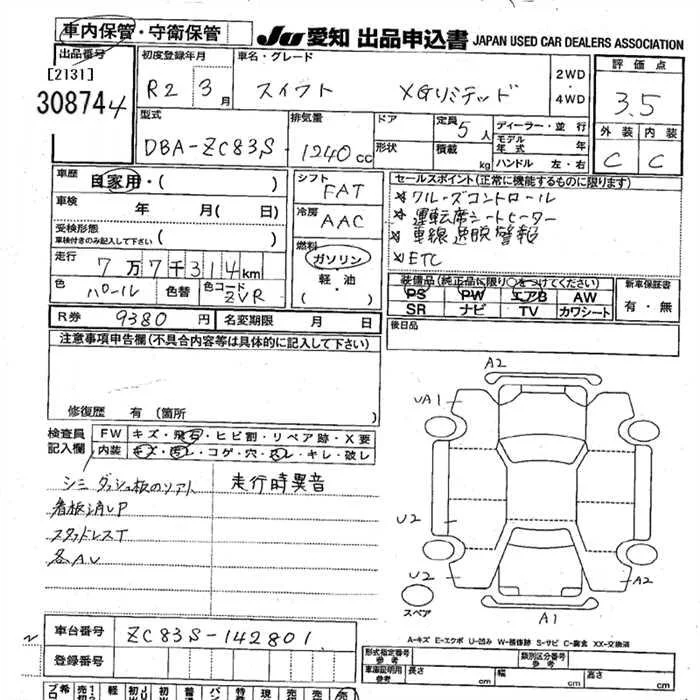 車内保管・守衛保管
JU 愛知 出品申込書 JAPAN USED CAR DEALERS ASSOCIATION
出品番号
[2131]
308744
初度登録年月
R2 3月
車名・グレード
スイフト XGリミテッド
2WD・4WD
評価点
3.5
外装 内装
C C
型式
DBA-ZC83S
排気量
1240cc
ドア
形状
定員 5人
積載 kg
ディーラー・並行
モデル年式 年
ハンドル 左・右
車歴 自家用・( )
車検 年 月( 日)
受検形態
車検付きのみ記入して下さい ( )
走行 7万7千314km
色 パール 色替 色コード ZVR
シフト
FAT
冷房
AAC
燃料
ガソリン
軽・油
( )
セールスポイント(正常に機能するものに限ります)
※クルーズコントロール
※運転席シートヒーター
※車線逸脱警報
※ETC
装備品(純正品に限り○をつけてください)
PS PW エアB AW
SR ナビ TV カワシート
新車保証書
有・無
R券 9380円 名変期限 月 日
後日品
注意事項申告欄(不具合内容等は具体的に記入して下さい)
修復歴 有(箇所 )
検査員記入欄
FW キズ・飛石・ヒビ割・リペア跡・X要
内装 キズ・汚レ・コゲ・穴・凹レ・キレ・破レ
シミ ダッシュ板の 走行時異音
看板消しP
スタッドレスT
各AU
A2
UA1
U2
U2
A2
A1
スペア
A-キズ E-エクボ U-凹み W-補修跡 S-サビ C-腐食 XX-交換済
車台番号 ZC83S-142801
登録番号
形式指定番号 参考
類別区分番号 参考
車庫証明用 参考
長さ cm 幅 cm 高さ cm